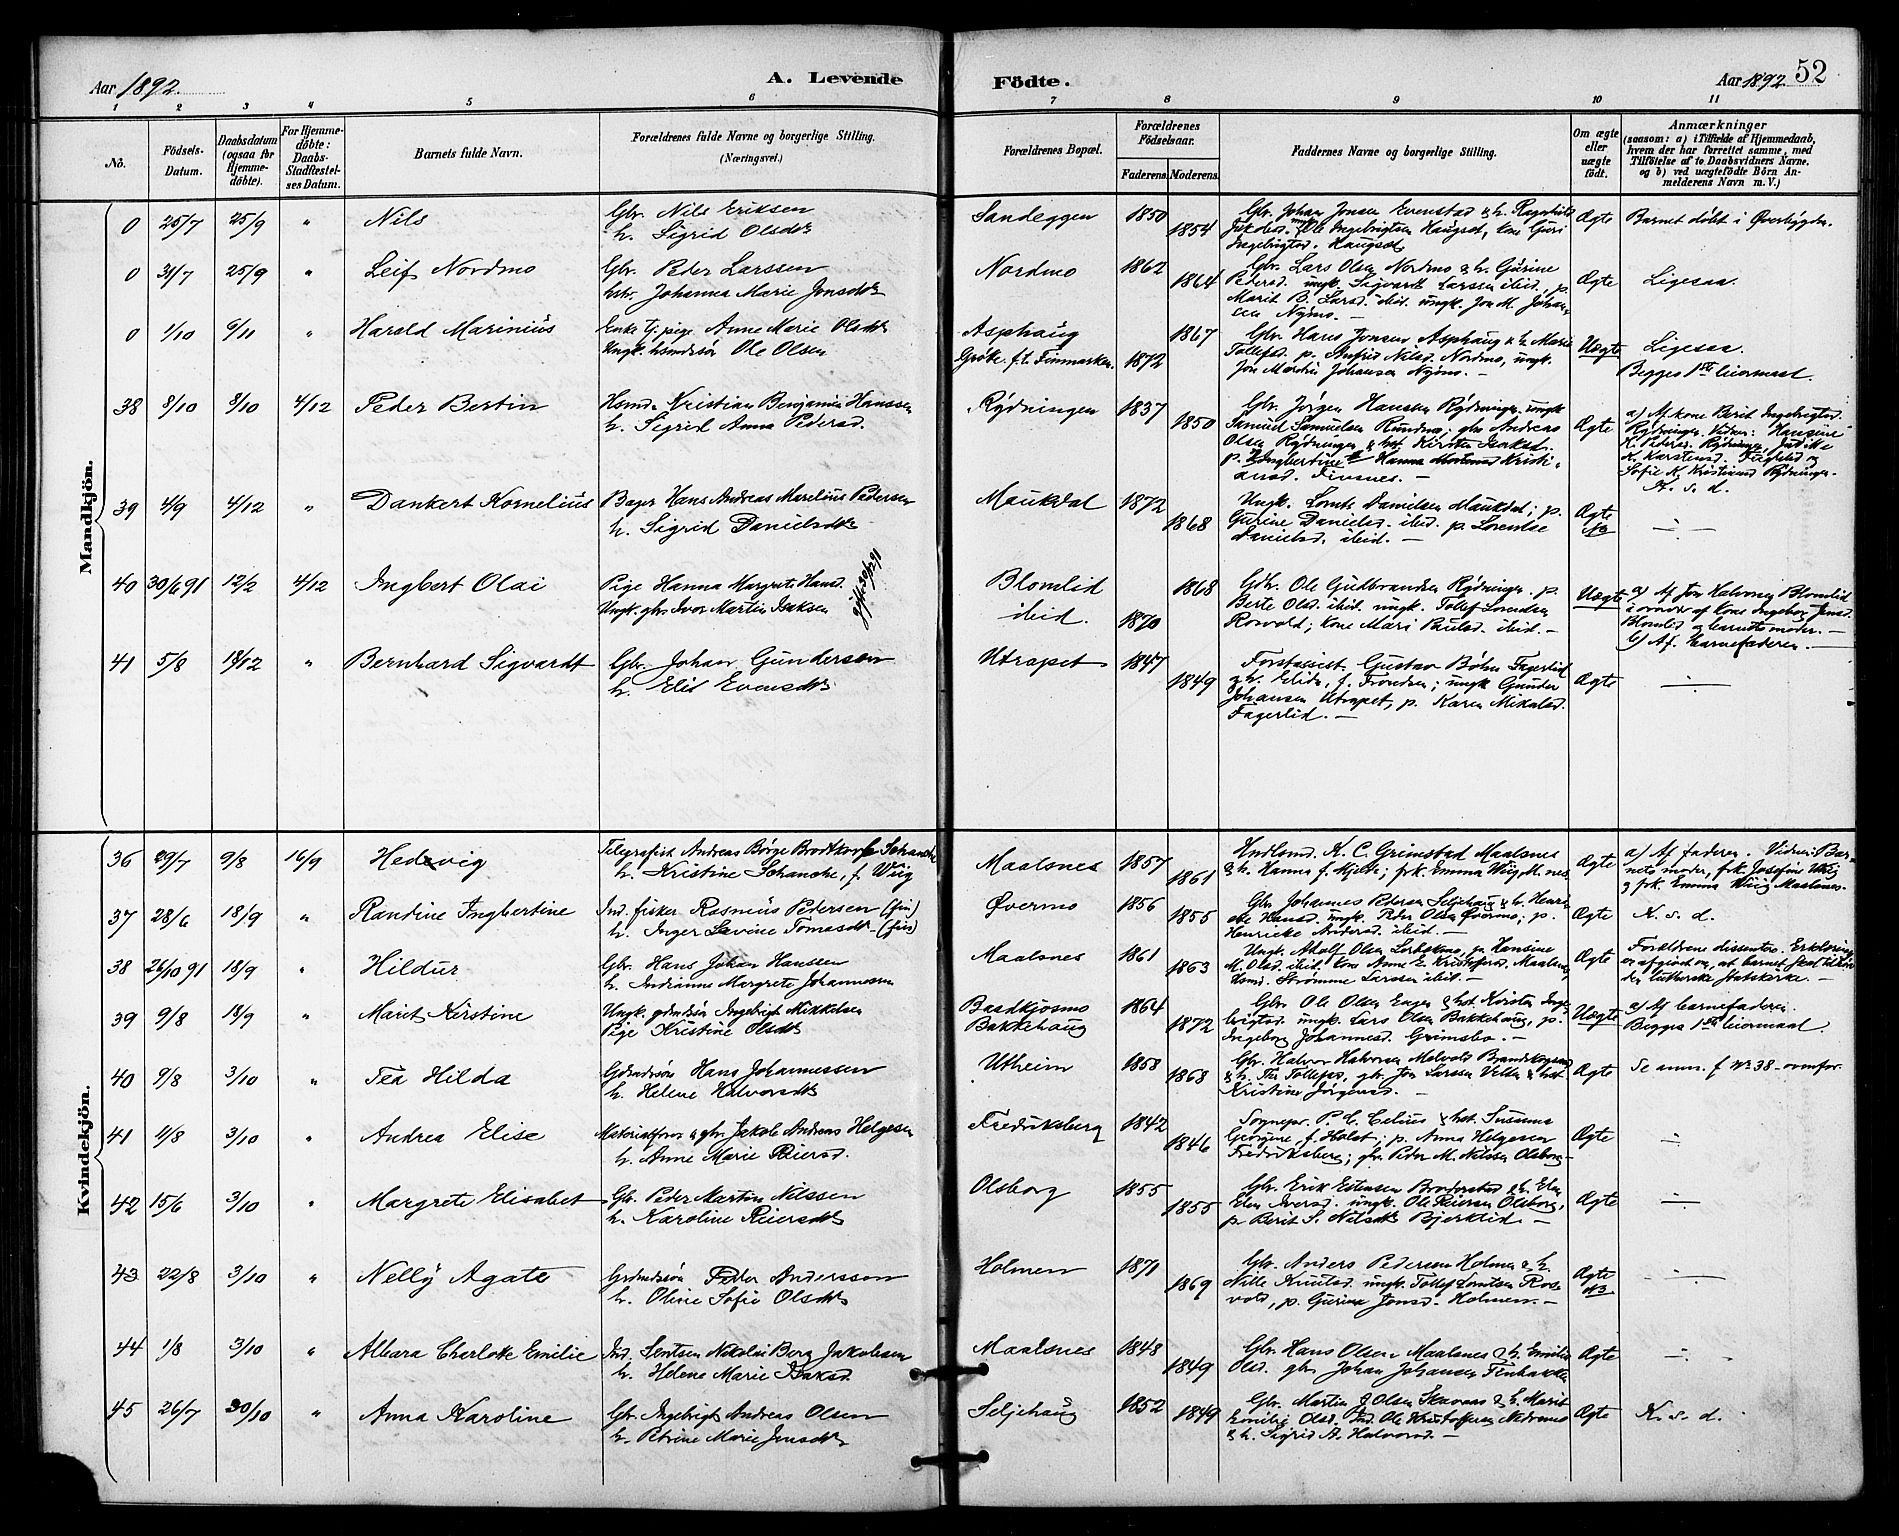 Aar 1892.
A. Levende
Födte.
Aar 1892. 52
1 2 3 4 5 6 7 8 9 10 11
No.
Födsels-
Datum.
Daabsdatum
(ogsaa for
Hjemme-
döbte).
For Hjemme-
döbte:
Daabs-
Stadfæstel-
ses Datum.
Barnets fulde Navn.
Forældrenes fulde Navne og borgerlige Stilling.
(Næringsvei.)
Forældrenes Bopæl.
Forældrenes
Födselsaar.
Faderens. Moderens.
Faddernes Navne og borgerlige Stilling.
Om ægte
eller
uægte
födt.
Anmærkninger
(saasom: a) i Tilfælde af Hjemmedaab,
hvem der har forrettet samme, med
Tilföielse af to Daabsvidners Navne,
og b) ved uægtefödte Börn An-
melderens Navn m. V.)
Mandkjön.
0 25/7 25/9 " Nils
Gbr. Nils Eriksen
h. Sigrid Olsdtr
Sandeggen 1850 1854
Gbr. Johan Jonsen Evenstad & h. Ragnhild
Jakobsd. ungk. Ole Ingebrigtsen Haugset, kone Guri
Ingebrigtsd. Haugset
Ægte
Barnet döbt i Øverbygden.
0 31/7 25/9 " Leif Nordmo
Gbr. Peder Larssen
hstr. Johanna Marie Jonsdtr
Nordmo 1862 1864
Gbr. Lars Olsen Nordmo & h. Gurine
Pedersd. ungk. Sigvart Larssen ibid, p.
Marit B. Larsd. ibid. ungk. Jon M. Johan-
sen Nymo. —
Ægte
Ligesaa.
0 1/10 9/11 " Harald Marinius
Enke tj. pige Anne Marie Olsdtr
Ungk. husmdssön Ole Olsen
Asphaug
Gröke. f. t. Finmarken. 1872 1867
Gbr. Hans Jonsen Asphaug & h. Marie
Tollefsd. p. Anfrid Nilsd. Nordmo, ungk.
Jon Martin Johansen Nymo. —
Uægte
Ligesaa.
Begges 1ste leiermaal.
38 8/10 8/10 4/12 Peder Bertin
Hsmd. Kristian Benjamin Hanssen
h. Sigrid Anna Pedersd.
Rydningen 1837 1850
Gbr. Jörgen Hansen Rydningen. ungk
Samuel Samuelsen Rundmo; gbr Andreas
Olsen Rydningen & hst Kirsten Isaksd.
p. Ingbertine Hanna Kristi-
ansd. Finsnes. —
Ægte
a) Af kone Berit Ingebrigtsd.
Rydningen. Vidner: Hansine
K. Pedersd. Rydningen
K. Karstensd. Fagerlid og
Sofie K. Kristiansd Rydningen.
K. s. d.
39 4/9 4/12 " Dankert Kornelius
Bager Hans Andreas Marelius Pedersen
h. Sigrid Danielsdtr
Maukdal 1872 1868
Ungk. Lornts Danielsen Maukdal; p.
Gurine Danielsd. ibid. p. Lorentse
Danielsd. ibid. —
Ægte
÷
40 30/6 91 12/2 4/12 Ingbert Olai
Pige Hanna Margrete Hansd.
Ungk. gbr. Ivar Martin Isaksen
Blomlid
ibid. 1870 1868
Gdbr. Ole Gudbrandsen Rydningen. p.
Berte Olsd. ibid. ungk. Tollef Lorentsen
Rosvold; kone Mari Paulsd. ibid. —
Uægte
a) Af Jon Halvorsen Blomlid
i overvær af kone Ingeborg Jonsd.
Blomlid og barnets moder. —
b) Af barnefaderen. —
41 5/8 18/12 " Bernhard Sigvardt
Gbr. Johan Gundersen
h. Elit Evensdtr
Utrapet 1847 1849
Forstassist. Gustav Böhn Fagerlid
& h. Elida, f. Trondsen; ungk Gunder
Johansen Utrapet, p. Karen Mikalsd.
Fagerlid. —
Ægte
÷
Kvindekjön.
36 29/7 9/8 16/9 Hedevig
Telegrafist Andreas Börge Brodtkorb Schanche
h. Kristine Schanche, f. Wiig
Maalsnes 1857 1861
Hndlsmd. A. C. Grimstad Maalsnes
& h. Hanna f. Hjelde; frk. Emma Wiig, M.nes
Ægte
a) Af faderen. Vidner: Bar-
nets moder, frk. Josefine Wiig
og frk. Emma Wiig Maalsnes.
37 28/6 18/9 " Randine Ingbertine
Ind. fisker Rasmus Petersen (fin)
h. Inger Lavine Tomasdtr (fin)
Øvermo 1856 1855
Gbr Johannes Pedersen Seljehaug & h. Henri-
ette Hansd. ungk. Peder Olsen Øvermo; p.
Henrikke Andersd. ibid. —
Ægte
K. s. d.
38 26/10 91 18/9 " Hildur
Gbr. Hans Johan Hanssen
h. Indianne Margrete Johannessen
Maalsnes 1861 1863
Ungk. Adolf Olsen p. Hansine
M. Olsd. ibid. kone Anne E. Kristoffersd. Maalsnes
Hsmd. Strömme Larssen ibid. —
Ægte
Forældrene dissentere. Erklæring
er afgivet om, at barnet skal tilhöre
den lutherske statskirke. —
39 9/8 18/9 " Marit Kirstine
Ungk. gdmdssön Ingebrigt Mikkelsen
Pige Kristine Olsdtr
Bardkjosmo
Bakkehaug 1864 1872
Gbr. Ole Olsen Enger & hst Kirsten Inge-
brigtsd. ungk. Lars Olsen Bakkehaug, p.
Ingeborg Johannesd. Grimsbo. —
Uægte
a) Af barnefaderen.
Begges 1ste leiermaal.
40 9/8 3/10 " Tea Hilda
Gdmdssön Hans Johannessen
h. Helene Halvorsdtr
Utheim 1858 1868
Gbr. Halvor Halvorsen Brandskognes
& h. Thi Tollefsd, gbr. Jon Larssen & hst
Kristine Jörgensd. —
Ægte
Se anm. f No 38 ovenfor.
41 4/8 3/10 " Andrea Elise
Materialforv. & gbr. Jakob Andreas Helgesen
h. Anne Marie Reiersd.
Fredriksberg 1842 1846
Sognepr. P. C. Celius & hst. Susanna
Georgine, f. Holst; p. Anna Helgesen
Fredriksberg; gbr. Peder M. Nilssen Olsborg. —
Ægte
÷
42 15/6 3/10 " Margrete Elisabet
Gbr. Peder Martin Nilssen
h. Karoline Reiersdtr
Olsborg 1855 1855
Gbr. Erik Estensen Broderstad & h. Elen
Elen Iversd. ungk. Ole Reiersen Olsborg,
p. Berit S. Nilsdtr Bjerklid. —
Ægte
÷
43 22/8 3/10 " Nelly Agate
Grdmdssön Peder Anderssen
h. Oline Sofie Olsdtr
Holmen 1871 1869
Gbr. Anders Pedersen Holmen & h.
Nille Knutsd. ungk. Tollef Lorntsen Ros-
vold, p. Gurine Jonsd. Holmen. —
Ægte
÷
44 1/8 3/10 " Albara Charlotte Emilie
Ind. Lentsen Nikolai Berg Jakobsen
h. Helene Marie Isaksd.
Maalsnes 1848 1849
Gbr. Hans Olsen Maalsnes & h. Emilie
Olsd. gbr. Johan Johansen Finbakken
Ægte
÷
45 26/7 30/10 " Anna Karoline
Gbr. Ingebrigt Andreas Olsen
h. Petrine Marie Jonsdtr
Seljehaug 1852 1849
Gbr. Martin J. Olsen & h. Marit
Emilie Olsd. Ind. Ole Kristoffersen Nedremo
& h. Sigrid A. Halvorsd. —
Ægte
K. s. d.